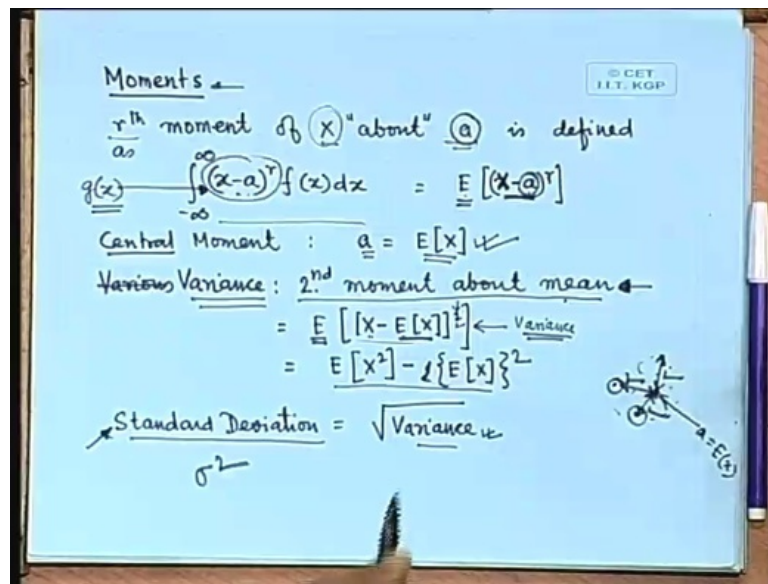 Moments
© CET
I.I.T. KGP
rth moment of X "about" a is defined
as
g(x) ∫_{-∞}^{∞} (x-a)^r f(x) dx = E [(x-a)^r]
Central Moment : a = E[x]
Various Variance : 2nd moment about mean
= E [[x - E[x]]^2] ← Variance
= E[x^2] - {E[x]}^2
a = E(x)
Standard Deviation = √Variance
σ^2